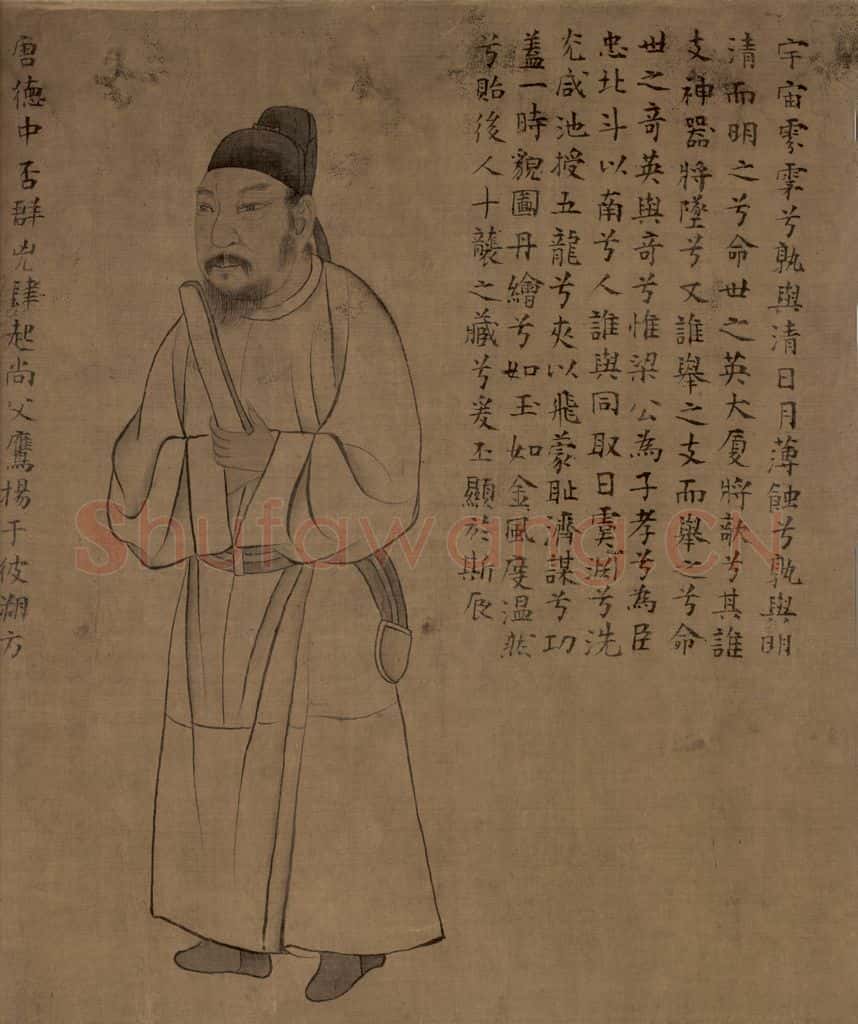 宇宙兮孰與清日月薄蝕兮孰與明
清而明之兮命世之英大廈將欹兮其誰
支神器將墜兮又誰舉之支而舉之兮命
世之奇英與奇兮惟梁公為子孝兮為臣
忠北斗以南兮人誰與同取日虞淵兮洗
光咸池授五龍兮夾以飛蒙耻濟謀兮功
蓋一時貌圖丹繪兮如玉如金風度溫然
兮貽後人十襲之藏兮爰丕顯於斯辰
唐德中否群兇肆起尚父鷹揚于彼朔方
Shufawang.CN